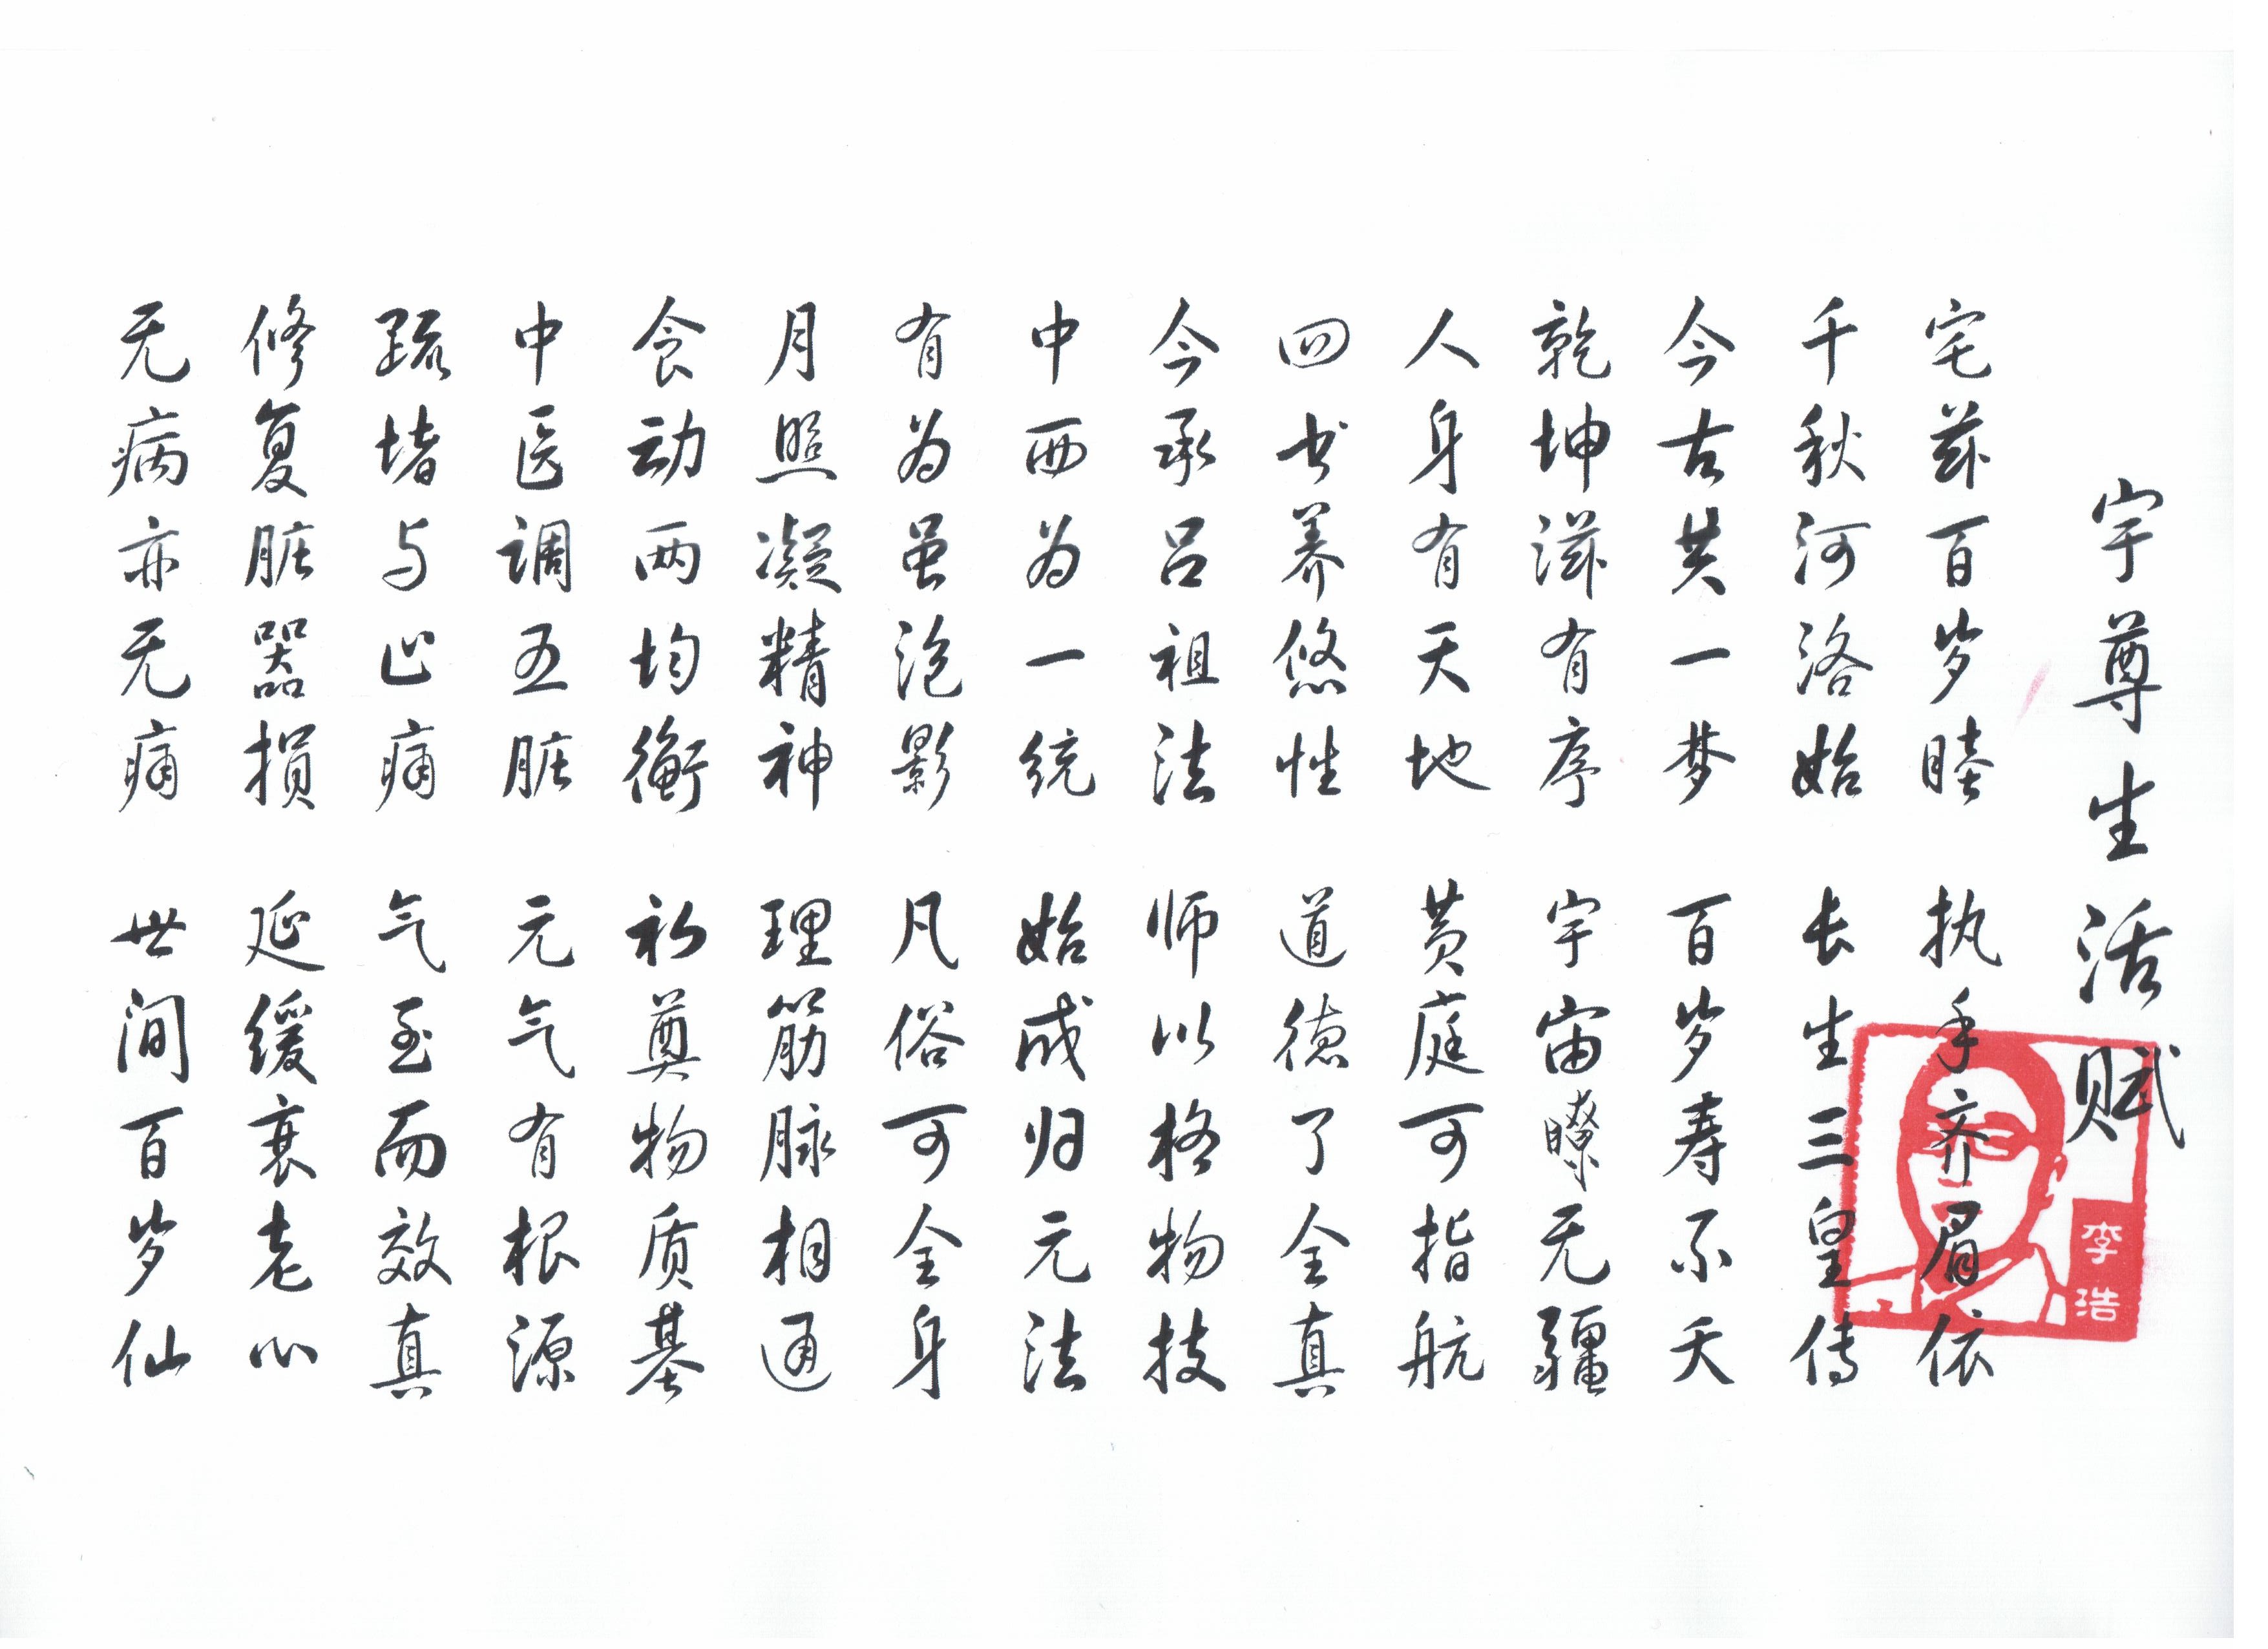 宇尊生活赋
宅兹百岁睦 执手齐眉依
千秋河洛始 长生三皇传
今古共一梦 百岁寿不夭
乾坤滋有序 宇宙瞭无疆
人身有天地 黄庭可指航
四书养悠性 道德了全真
今承吕祖法 师以格物技
中西为一统 始成归元法
有为虽泡影 凡俗可全身
月照凝精神 理筋脉相通
食动两均衡 初奠物质基
中医调五脏 元气有根源
疏堵与止痛 气至而效真
修复脏器损 延缓衰老心
无病亦无痛 世间百岁仙
李浩